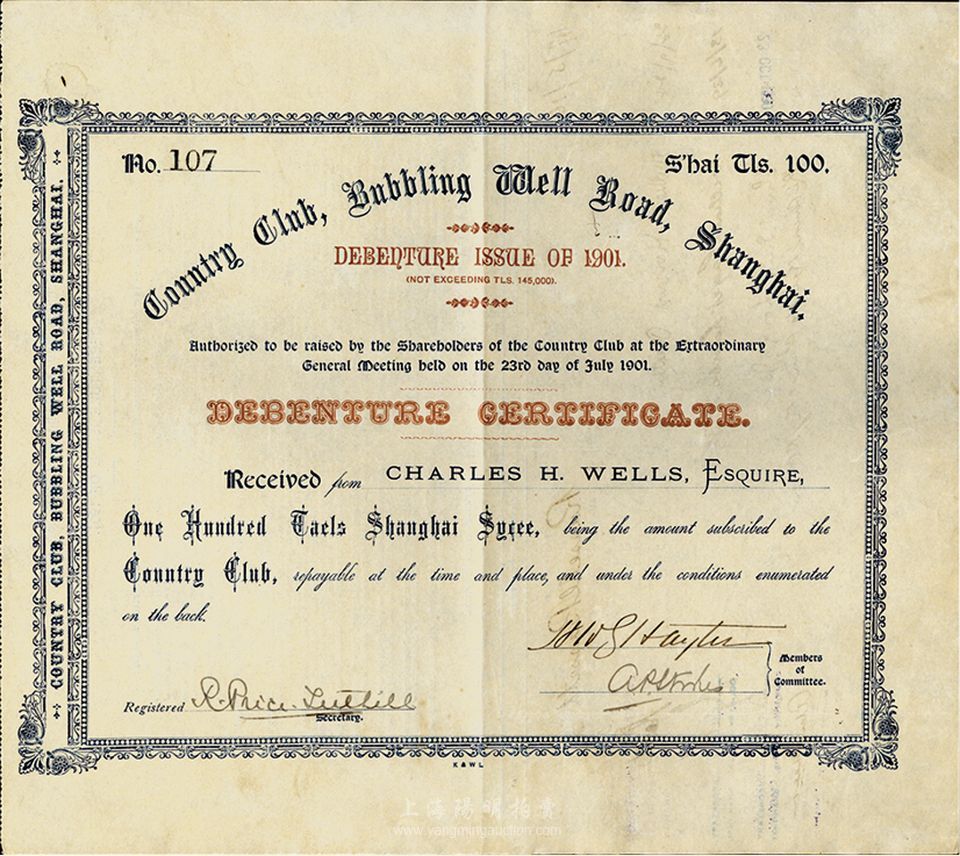 No. 107
S'hai Tls. 100.
Country Club, Bubbling Well Road, Shanghai.
DEBENTURE ISSUE OF 1901.
(NOT EXCEEDING TLS. 145,000).
Authorized to be raised by the Shareholders of the Country Club at the Extraordinary
General Meeting held on the 23rd day of July 1901.
DEBENTURE CERTIFICATE.
Received from CHARLES H. WELLS, ESQUIRE,
One Hundred Taels Shanghai Sycee, being the amount subscribed to the
Country Club, repayable at the time and place, and under the conditions enumerated
on the back.
Members
of
Committee.
Registered R. Price
Secretary.
COUNTRY CLUB, BUBBLING WELL ROAD, SHANGHAI.
K & W L
上海陽明拍賣
www.yangmingauction.com